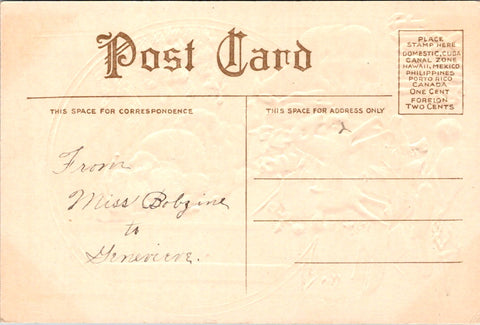 Post Card
PLACE
STAMP HERE
DOMESTIC, CUBA
CANAL ZONE
HAWAII, MEXICO
PHILIPPINES
PORTO RICO
CANADA
ONE CENT
FOREIGN
TWO CENTS
THIS SPACE FOR CORRESPONDENCE
THIS SPACE FOR ADDRESS ONLY
From
Miss Bobzine
to
Genevieve.